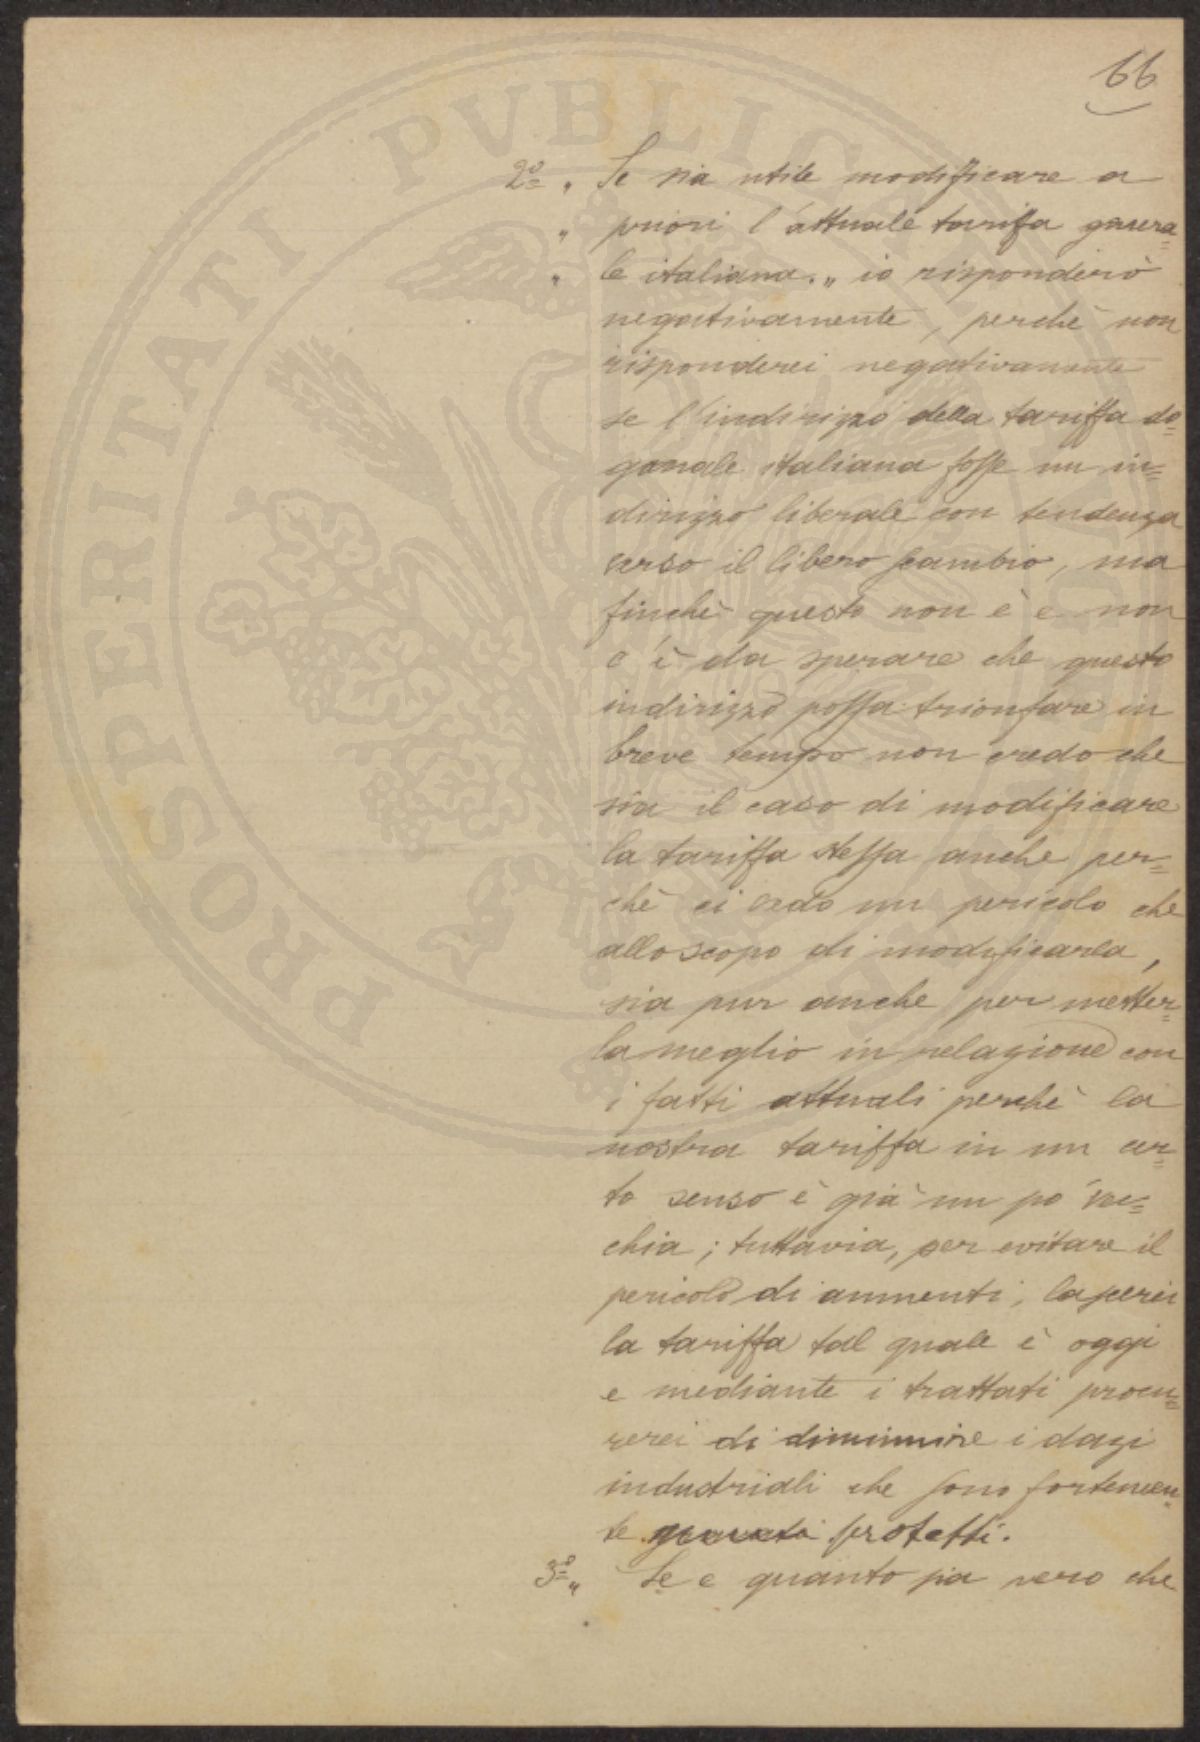 66
2º " Se sia utile modificare a
" priori l'attuale tariffa genera=
" le italiana. „ io risponderò
negativamente, perchè non
risponderei negativamente
se l'indirizzo della tariffa do=
ganale italiana fosse un in=
dirizzo liberale con tendenza
verso il libero scambio, ma
finchè questo non è e non
c'è da sperare che questo
indirizzo possa trionfare in
breve tempo non credo che
sia il caso di modificare
la tariffa stessa anche per=
chè ci vedo un pericolo che
allo scopo di modificarla,
sia pur anche per metter=
la meglio in relazione con
i fatti attuali perchè la
nostra tariffa in un cer=
to senso è già un po' vec=
chia; tuttavia, per evitare il
pericolo di aumenti, lascerei
la tariffa tal quale è oggi
e mediante i trattati procu=
rerei di diminuire i dazi
industriali che sono fortemen=
te protetti.
3º " Se e quanto sia vero che
PROSPERITATI PVBLICAE